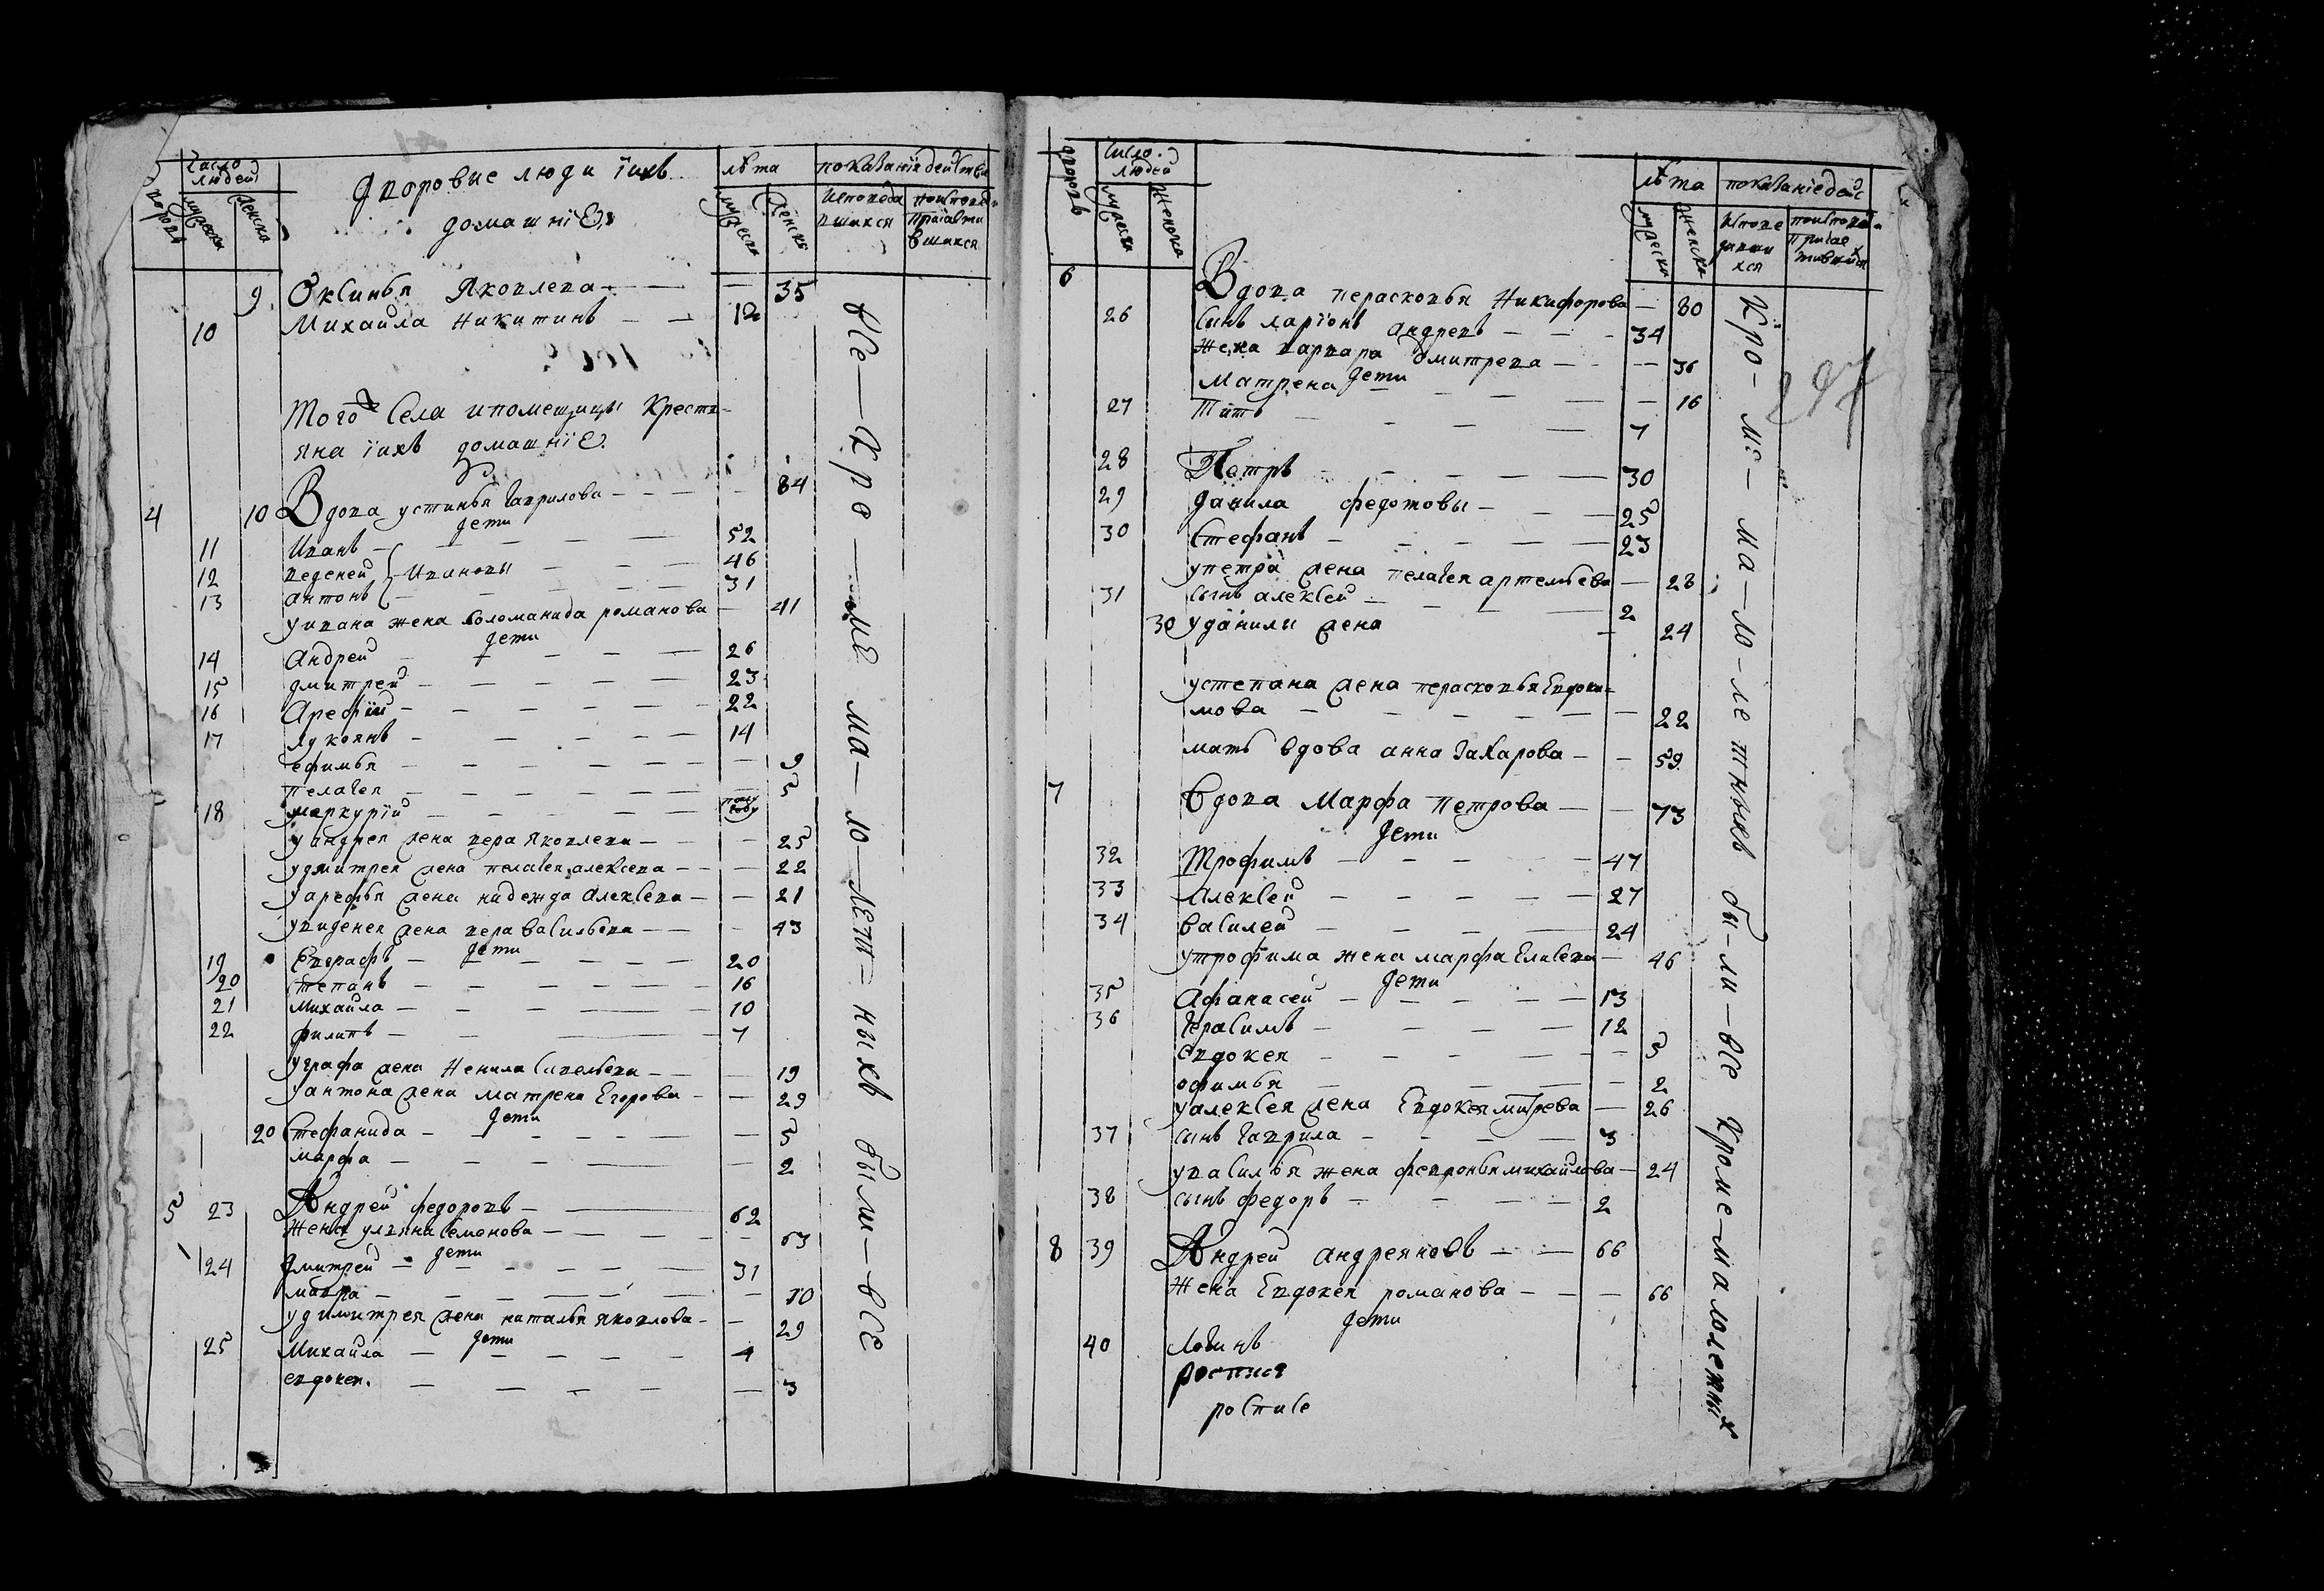 Число людей
дворовъ
мужеска
женска
Дворовые люди ихъ
домашнїе
лѣта
мужеска
женска
показанїе действа
исповеда
вшихся
9 Оксинья Яковлева — — 35
10 Михаила Никитинъ — — 12
Того Села и помещицы Кресть-
яна їихъ домашнїе
4 10 Вдова устинья Гаврилова — — — 84
дети
11 Иванъ — — — 52
12 веденей Ивановы — — — 46
13 антонъ — — — 31
у ивана жена Соломанида романова — 41
дети
14 Андрей — — — 26
15 дмитрей — — — 23
16 Арефїи — — — 22
17 Лукоянъ — — — 14
ефимья — — — 9
пелагея — — — 5
18 меркурїй — — — полу году
у андрея жена вера Яковлева — — 25
у дмитрея жена пелагея алексева — — 22
у арефья жена надежда Алексева — — 21
у виденея жена вера Васильева — — 43
дети
19 Евграфъ — — — 20
20 степанъ — — — 16
21 михайла — — — 10
22 филипъ — — — 7
у графа жена Ненила Савельева — — 19
у антона жена матрена Егорова — — 29
дети
20 Стефанида — — — 5
марфа — — — 2
5 23 Андрей федоровъ — — 62
жена ульяна Семенова — — — 63
дети
24 Дмитрей — — — 31
мавра — — — 30
у димитрея жена наталья яковлова — — 29
дети
25 Михайла — — — 4
евдокея. — — — 3
все — Кро — ме ма — ло — лет = ныхъ были — все
дворовъ
Число людей
мужеска
женска
лѣта
мужеска
женска
показанїе дейс
испове
давши
хся
6 Вдова перасковья Никифорова — 80
26 сынъ ларїонъ андревъ — — 34
жена варвара дмитрева — — 36
дети
Матрена — — — 16
27 Титъ — — — 7
28 Петръ — — — 30
29 данила федотовы — — — 25
30 Стефанъ — — — 23
у петра жена пелагея артемьева — 28
31 сынъ алексей — — — 2
30 у данилы жена — 24
у степана жена перасковья Евдоки-
мова — — — 22
мать вдова анна Захарова — — 59
7 Вдова Марфа Петрова — — 73
дети
32 Трофимъ — — — 47
33 Алексей — — — 27
34 василей — — — 24
у трофима жена марфа Елисева — 46
дети
35 Афанасей — — — 13
36 Герасимъ — — — 12
Евдокея — — — 5
офимья — — — 2
у алексея жена Евдокея митрева — 26
37 сынъ Гаврила — — — 3
у василья жена февронья михайлова — 24
38 сынъ федоръ — — — 2
8 39 Андрей андреяновъ — — 66
жена Евдокея романова — — — 66
дети
40 Логинъ
росписе
росписе
Кро — ме — ма — ло — ле тныхъ бы — ли — все Кроме — малолетных